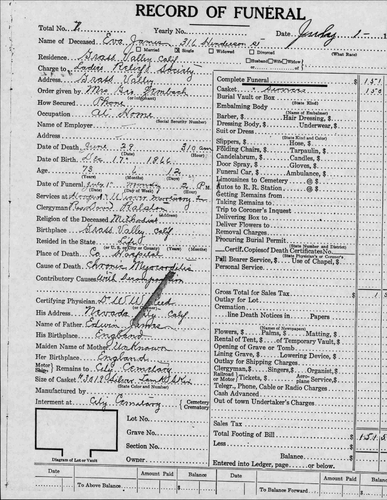 RECORD OF FUNERAL
Total No. 7. Yearly No. Date July 1-
Name of Deceased Eva James 316 Henderson St
Married Single Widowed Divorced
Residence Grass Valley Calif
Husband or Wife of
Charge to Ladies Relief Society
Address Grass Valley
Order given by Mrs Geo
How Secured Phone
Occupation At Home
(Social Security Number)
Name of Employer
Address
Date of Death June 29 310
Date of Birth Dec 17 1866
73 6 12
(Years) (Months) (Days)
Date of Funeral July 1st Monday 2 P.m
Services at
Clergyman Ralston
Religion of the Deceased Methodist
Birthplace Grass Valley Calif
Resided in the State Life
Place of Death Co Hospital
Cause of Death Chronic Myocarditis
Contributory Causes with
Certifying Physician Dr W W Reed
His Address Nevada City Calif
Name of Father Edwin James
His Birthplace England
Maiden Name of Mother Unknown
Her Birthplace England
Remains to City Cemetery
Motor
Size of Casket
(State Color and Number)
Manufactured by
Interment at City Cemetery
Cemetery
Crematory
Lot No.
Grave No.
Section No.
Owner
Diagram of Lot or Vault
Complete Funeral $ 151
Casket $ 150
Burial Vault or Box $
(State Kind)
Embalming Body $
Barber, $ Hair Dressing, $
Dressing Body, $ Underwear, $
Suit or Dress $
(State Kind and Color)
Slippers, $ Hose, $
Folding Chairs, $ Tarpaulin, $
Candelabrum, $ Candles, $
Door Spray, $ Gloves, $
Funeral Car, $ Ambulance, $
Limousines to Cemetery @ $
Autos to R. R. Station @ $
Getting Remains from $
Taking Remains to $
Trip to Coroner's Inquest $
Delivering Box to $
Deliver Flowers to $
Removal Charges $
Procuring Burial Permit $
(State Number and District)
Cert. Copies of Death Certificates No. $
(State Physician's or Coroner's)
Pall Bearer Service, $ Use of Chapel, $
Personal Service, $
Gross Total for Sales Tax $
Outlay for Lot $
Cremation $
line Death Notices in Papers $
(Names of Newspapers)
Flowers, $ Palms, $ Matting, $
Rental of Tent, $ of Temporary Vault, $
Opening of Grave or Tomb $
Lining Grave, $ Lowering Device, $
Outlay for Shipping Charges $
Clergyman, $ Singers, $ Organist, $
Railroad Tickets, $ Aeroplane Service, $
or Motor
Telegr., Phone, Cable or Radio Charges $
Cash Advanced $
Out of town Undertaker's Charges $
Sales Tax $
Total Footing of Bill $ 151
Less $
Balance $
Entered into Ledger, page or below.
Date Amount Paid Balance Date Amount Paid Balance
To Above Balance To Balance Forward